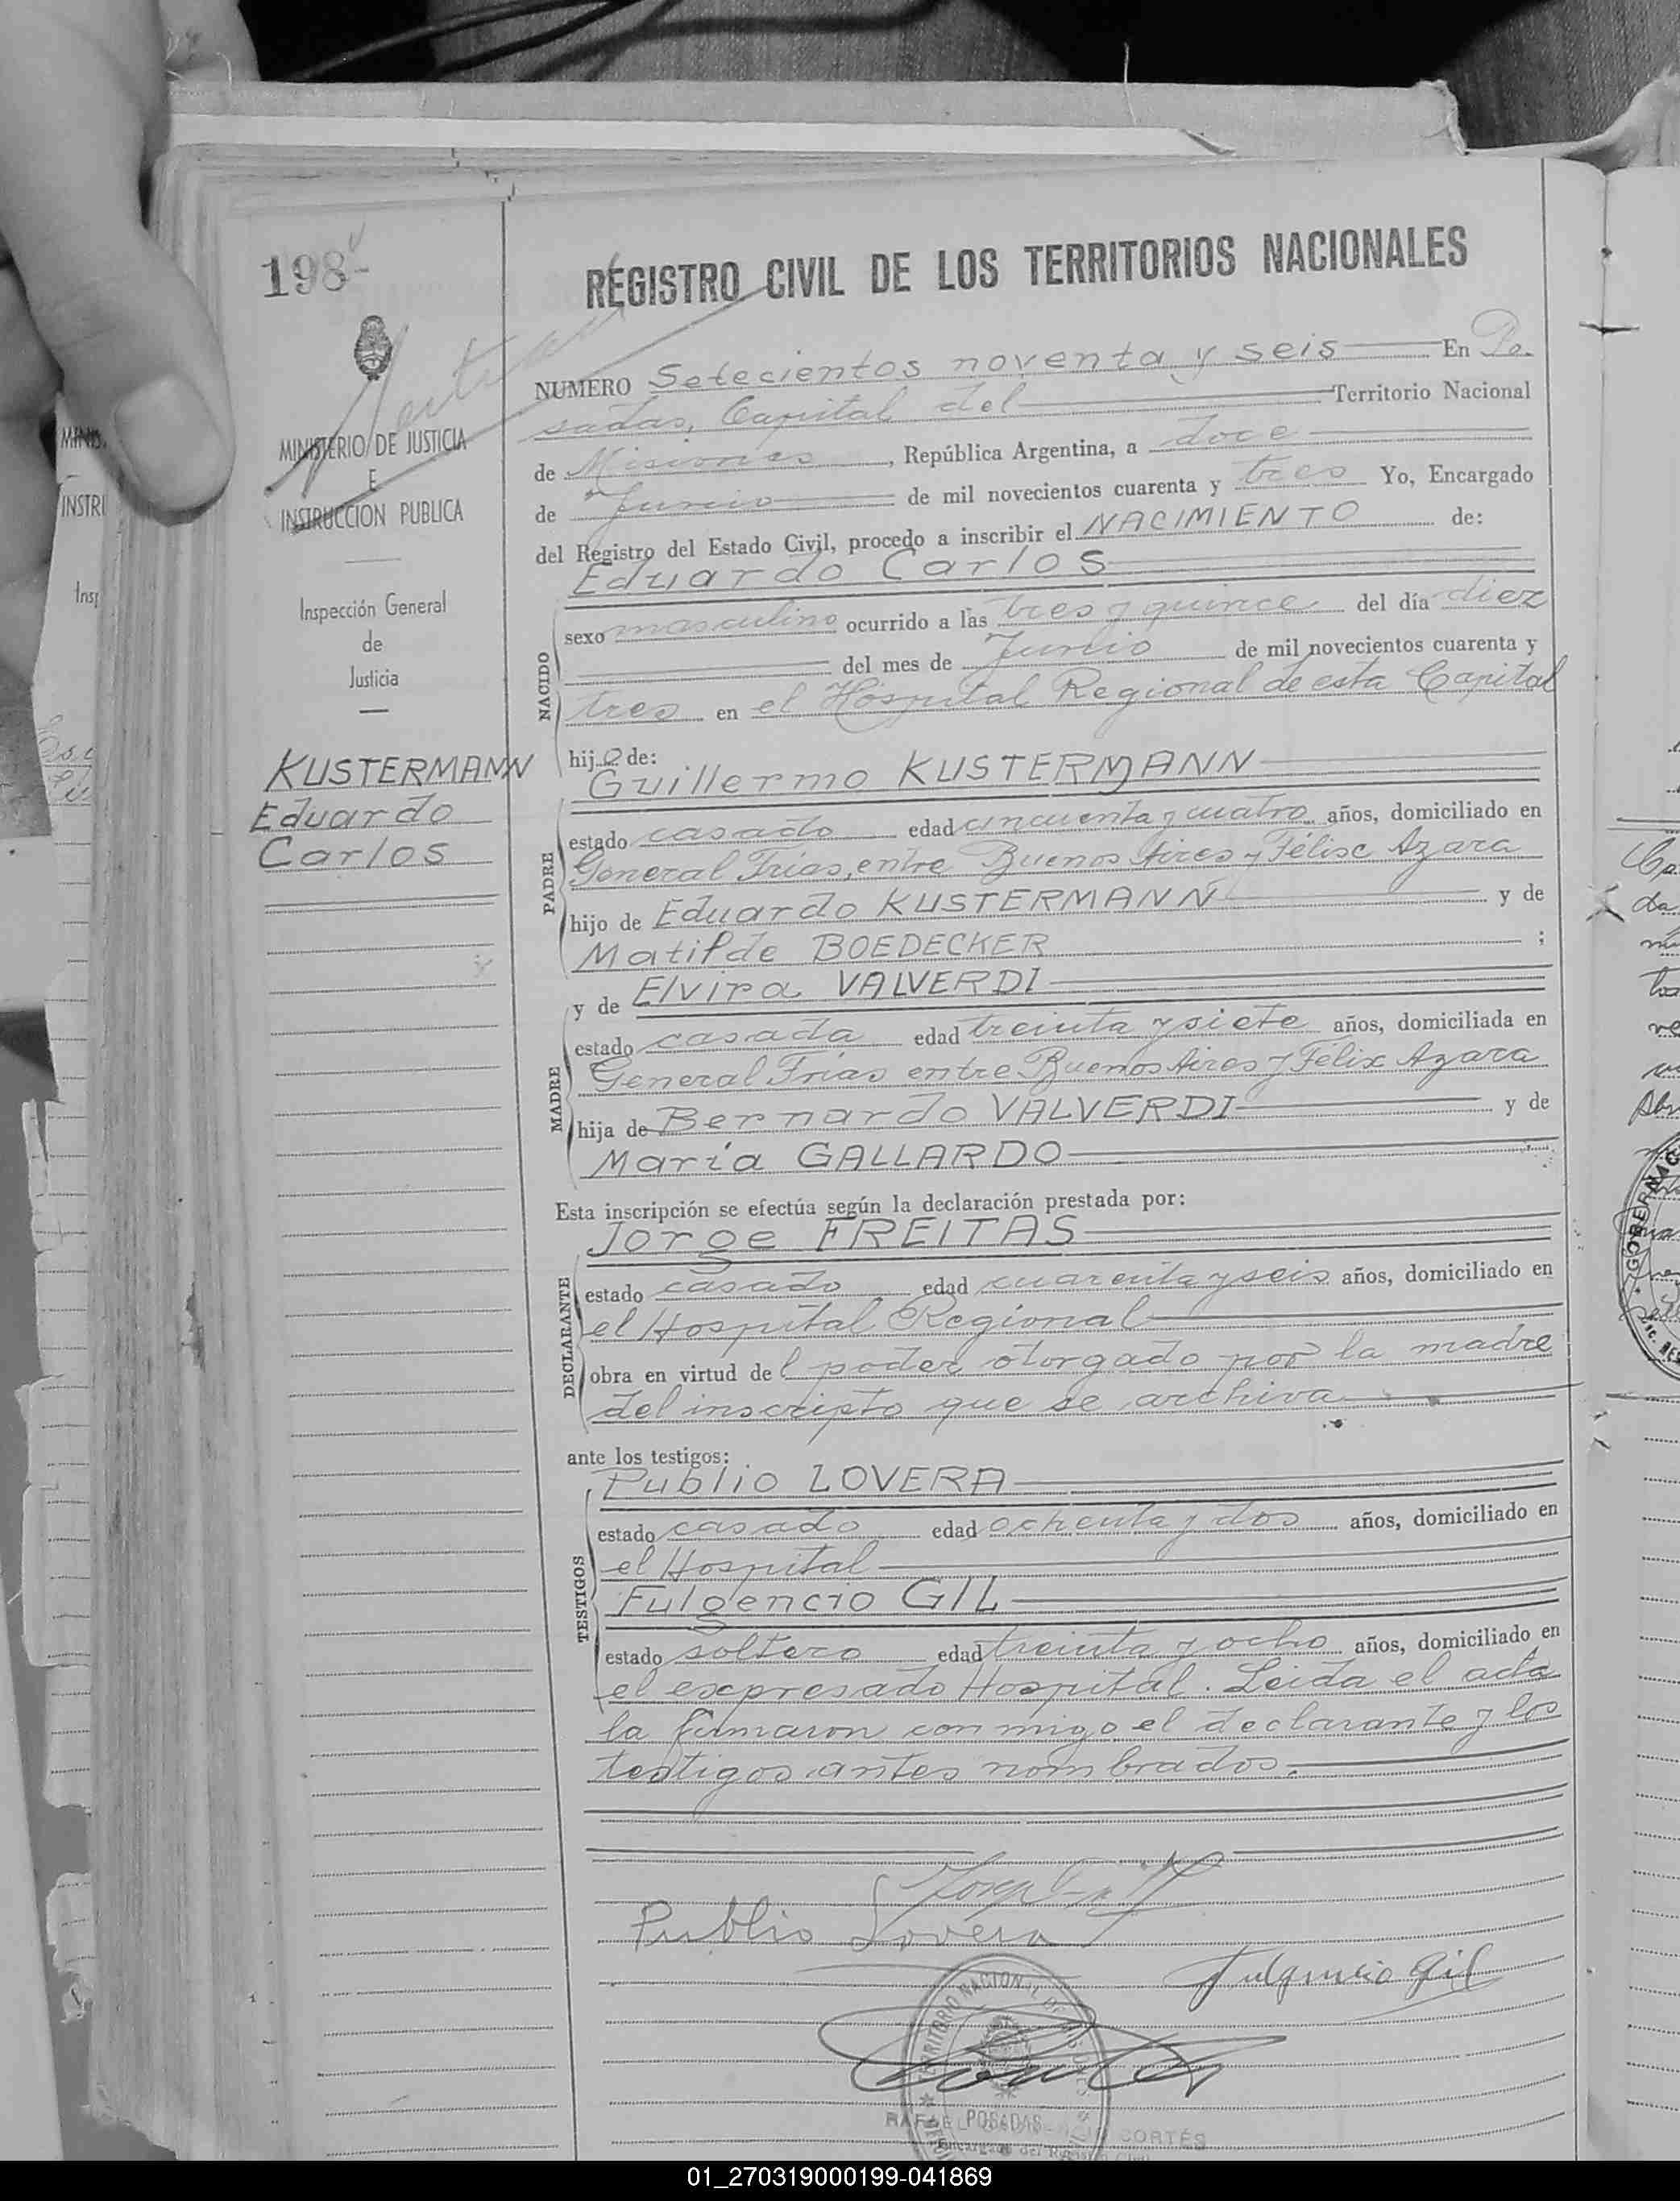 198-
REGISTRO CIVIL DE LOS TERRITORIOS NACIONALES
MINISTERIO DE JUSTICIA
E
INSTRUCCION PUBLICA
Inspección General
de
Justicia
KUSTERMANN
Eduardo
Carlos
NUMERO Setecientos noventa y seis En Po-
sadas, Capital del Territorio Nacional
de Misiones, República Argentina, a doce
de Junio de mil novecientos cuarenta y tres Yo, Encargado
del Registro del Estado Civil, procedo a inscribir el NACIMIENTO de:
Eduardo Carlos
NACIDO
sexo masculino ocurrido a las tres y quince del día diez
del mes de Junio de mil novecientos cuarenta y
tres en el Hospital Regional de esta Capital
hijo de:
Guillermo KUSTERMANN
PADRE
estado casado edad cincuenta y cuatro años, domiciliado en
General Frias, entre Buenos Aires y Félix Azara
hijo de Eduardo KUSTERMANN y de
Matilde BOEDECKER ;
y de Elvira VALVERDI
MADRE
estado casada edad treinta y siete años, domiciliada en
General Frias entre Buenos Aires y Félix Azara
hija de Bernardo VALVERDI y de
María GALLARDO
Esta inscripción se efectúa según la declaración prestada por:
Jorge FREITAS
DECLARANTE
estado casado edad cuarenta y seis años, domiciliado en
el Hospital Regional
obra en virtud del poder otorgado por la madre
del inscripto que se archiva
ante los testigos:
Publio LOVERA
TESTIGOS
estado casado edad ochenta y dos años, domiciliado en
el Hospital
Fulgencio GIL
estado soltero edad treinta y ocho años, domiciliado en
el expresado Hospital. Leida el acta
la firmaron conmigo el declarante y los
testigos antes nombrados.
Publio Lovera
Fulgencio Gil
TERRITORIO NACIONAL DE
POSADAS
RAFAEL CORTÉS
Encargado del Registro Civil
01_270319000199-041869